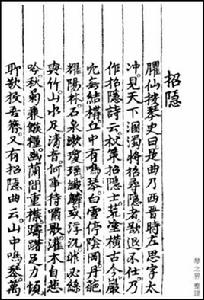 招隱
臞仙按琴史曰是曲乃西晋時左思字太
冲見天下溷濁將招尋隱者欲退不仕乃
作招隱詩云杖策招隱士荒塗橫古今巖
穴無結構丘中有鳴琴白雪停陰岡丹葩
耀陽林石泉漱瓊瑤纖鱗或浮沉非必絲
與竹山水有清音何事待嘯歌灌木自悲
吟秋菊兼餱糧幽蘭間重襟躊躇足力煩
聊欲投吾簪又有招隱曲云山中鳴琴萬
琴之界 整理